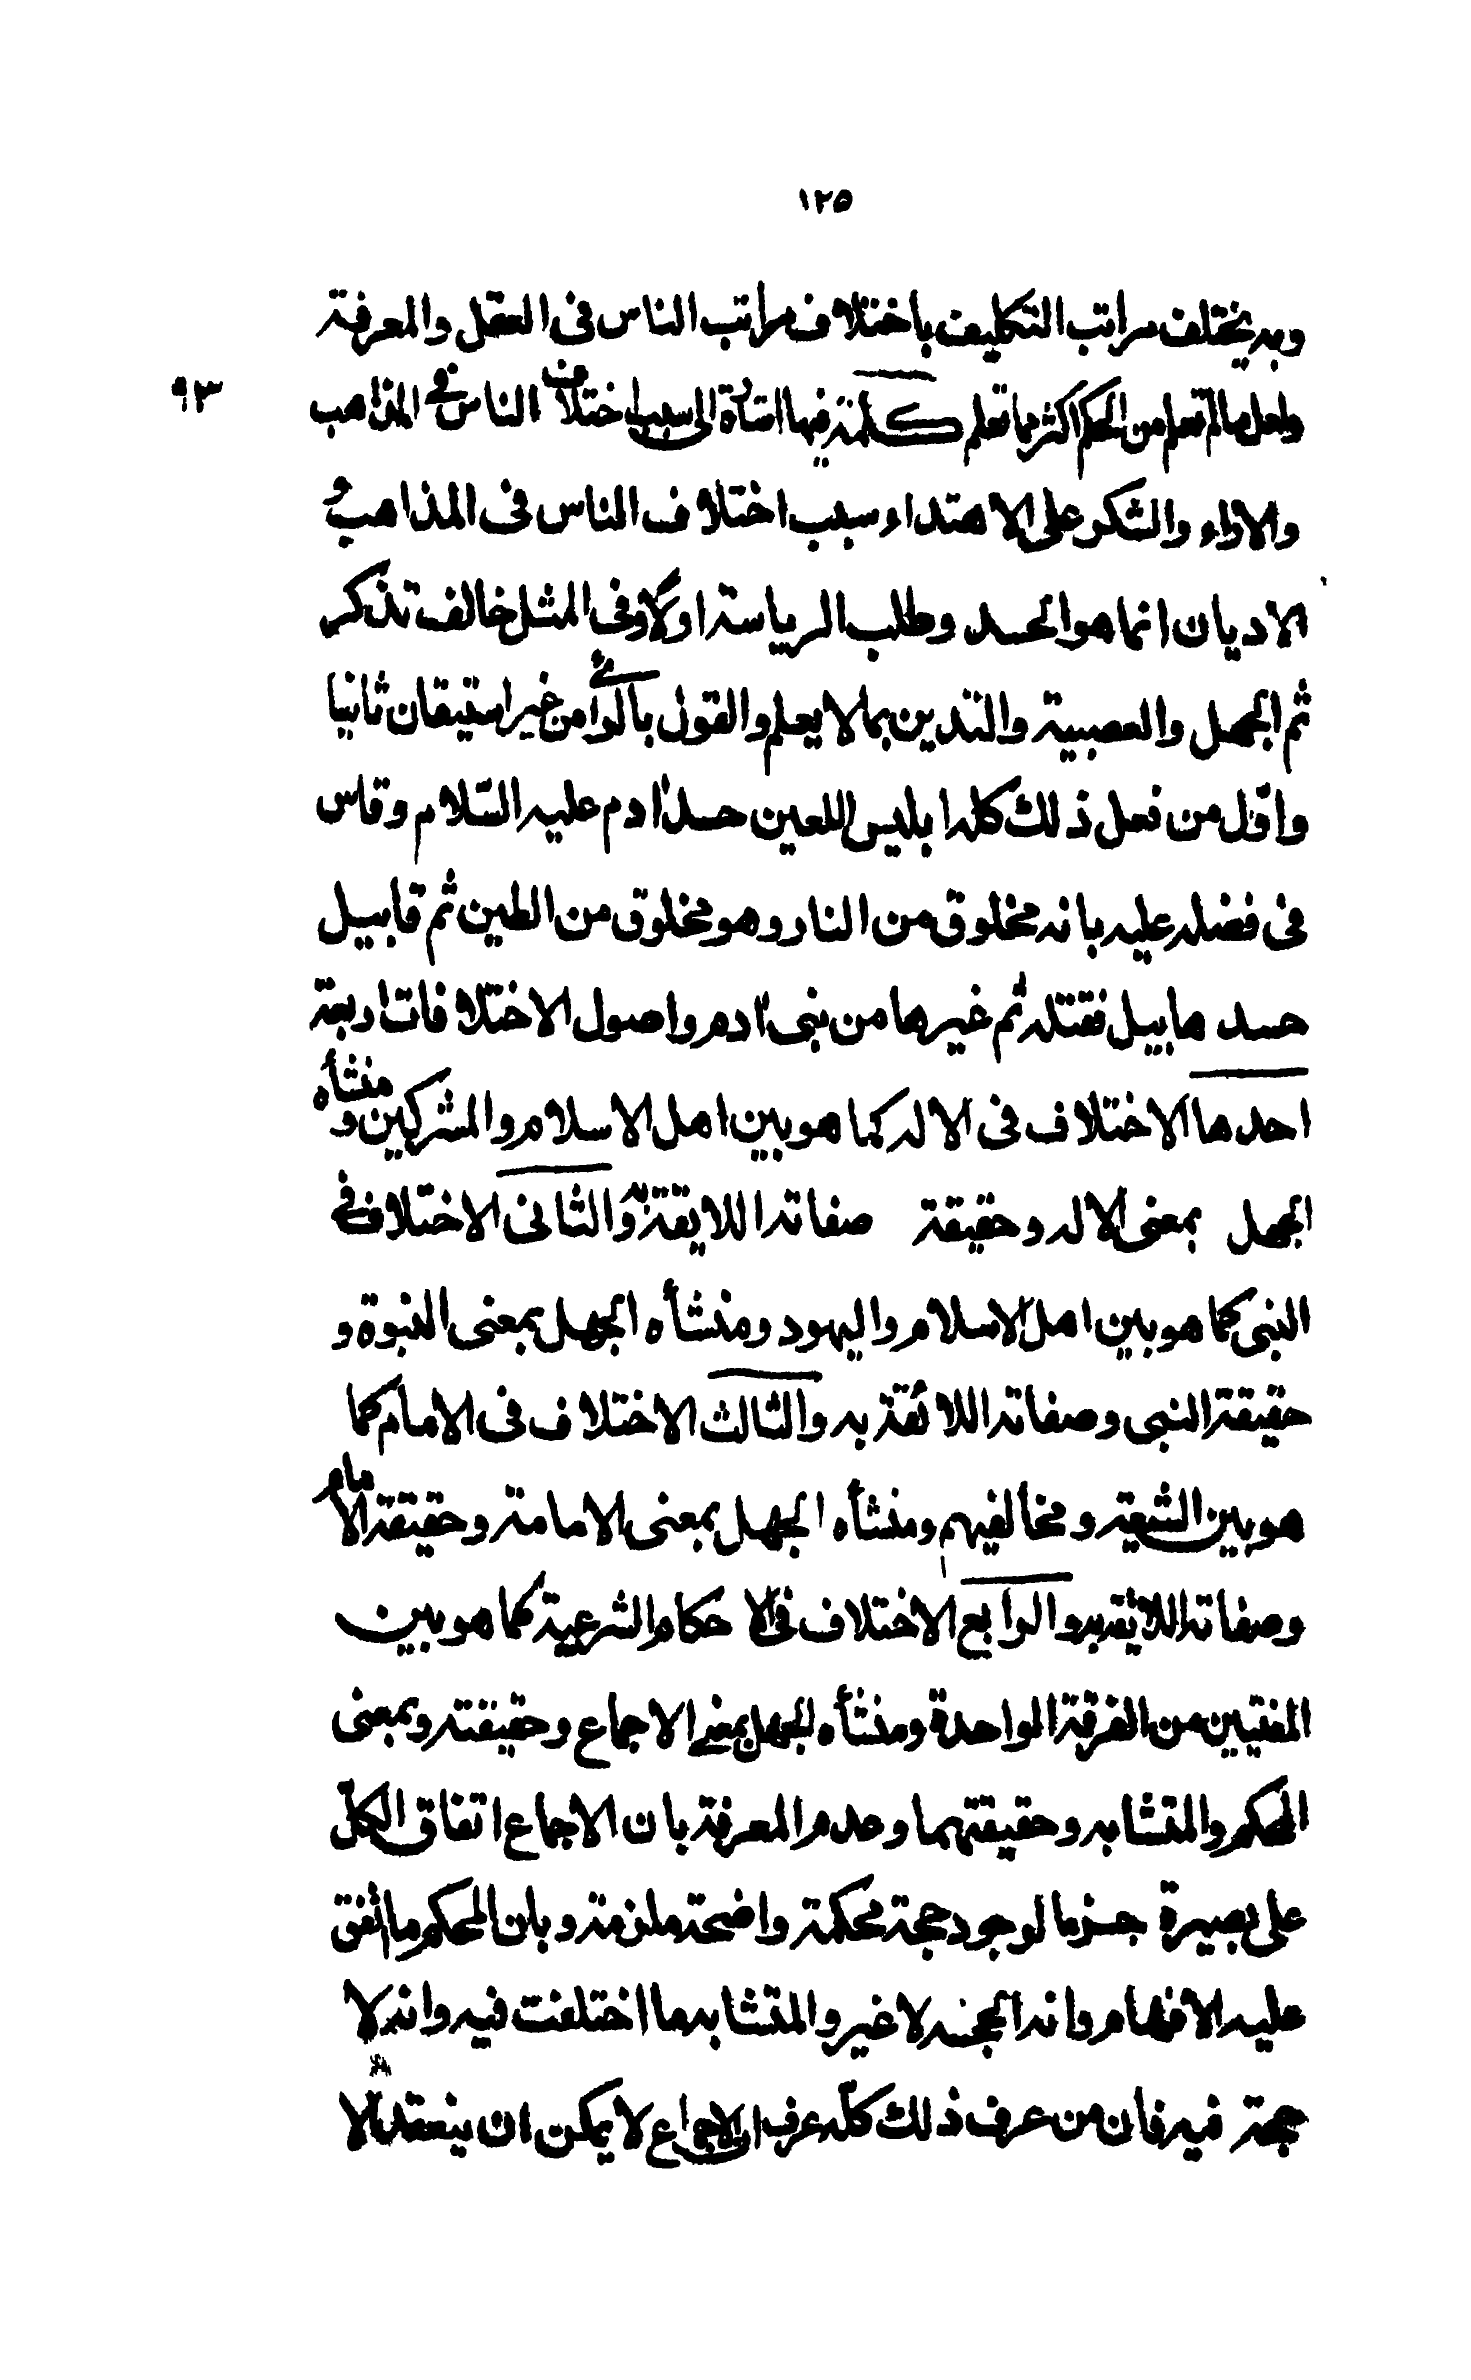 ١٢٥
وبه يختلف مراتب التكليف باختلاف مراتب الناس فى العقل والمعرفة
ولعل مالم تعلم من الحكم اكثر مما تعلم كلمة فيها اشارة الى سبب اختلاف الناس فى المذاهب
٩٣
والاراء والشكر على الاهتداء سبب اختلاف الناس فى المذاهب و
الاديان انما هو الحسد وطلب الرياسة اولا وفى المثل خالف تذكر
ثم الجهل والعصبية والتدين بما لا يعلم والقول بالرأى من غير استيقان ثانيا
واوّل من فعل ذلك كله ابليس اللعين حسد ادم عليه السّلام وقاس
فى فضله عليه بانه مخلوق من النار وهو مخلوق من الطين ثم قابيل
حسد هابيل فقتله ثم غيرها من بنى ادم واصول الاختلافات اربعة
احدها الاختلاف فى الاله كما هو بين اهل الاسلام والمشركين ومنشأه
الجهل بمعنى الاله وحقيقة صفاته اللايقة به والثانى الاختلاف فى
النبى كما هو بين اهل الاسلام واليهود ومنشأه الجهل بمعنى النبوة و
حقيقة النبى وصفاته اللائقة به والثالث الاختلاف فى الامام كما
هو بين الشيعة ومخالفيهم ومنشأه الجهل بمعنى الامامة وحقيقة الامام
وصفاته اللائقة به والرابع الاختلاف فى الاحكام الشرعية كما هو بين
المفتيين من الفرقة الواحدة ومنشأه الجهل بمعنى الاجماع وحقيقته وبمعنى
المحكم والمتشابه وحقيقتهما وعدم المعرفة بان الاجماع اتفاق الكلّ
على بصيرة جزما لوجود حجة محكمة واضحة ملزمة وبان المحكم ما اتفق
عليه الافهام وانه الحجة لا غير والمتشابه ما اختلفت فيه وانه لا
حجة فيه فان من عرف ذلك كلّه عرف ان الاجماع لا يمكن ان ينعقد الا